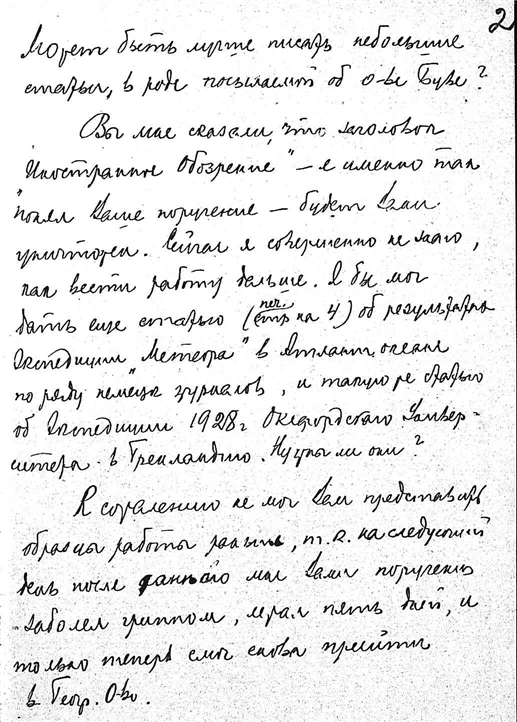 2
Может быть лучше писать небольшие
статьи, в роде посылаемой об о-ве Буве?
Вы мне сказали, что заголовок
"Иностранное Обозрение" – я именно так
понял Ваше поручение – будет Вами
уничтожен. Сейчас я совершенно не знаю,
как вести работу дальше. Я бы мог
дать еще статью (печ. стр на 4) об результатах
Экспедиции "Метеора" в Атлант. океане
по ряду немецк журналов, и такую же статью
об Экспедиции 1928 г Оксфордского Универ-
ситета в Гренландию. Нужны ли они?
К сожалению не мог Вам представить
образцы работы раньше, т.к. на следующий
день после данного мне Вами поручения
заболел гриппом, лежал пять дней, и
только теперь смог снова прийти
в Геогр. О-во.